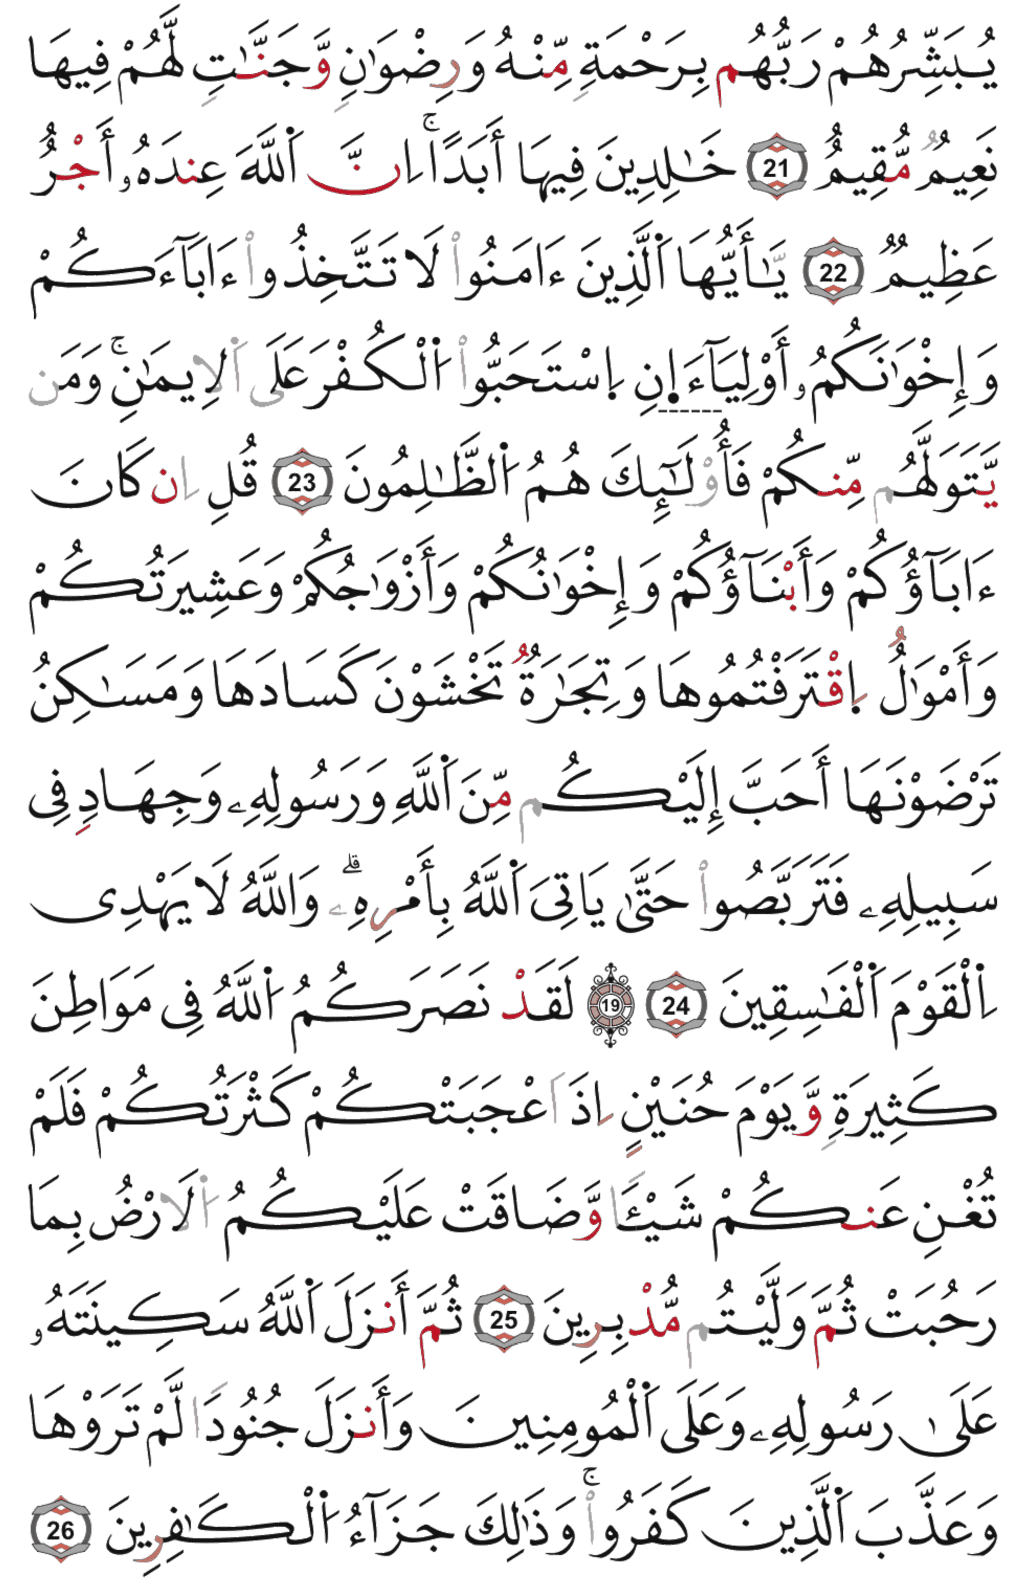 يُبَشِّرُهُمْ رَبُّهُم بِرَحْمَةٍ مِّنْهُ وَرِضْوَٰنٍ وَّجَنَّٰتٍ لَّهُمْ فِيهَا
نَعِيمٌ مُّقِيمٌ 21 خَٰلِدِينَ فِيهَا أَبَدًاۚ اِنَّ اَ۬للَّهَ عِندَهُۥ أَجْرٌ
عَظِيمٌ 22 يَّٰأَيُّهَا اَ۬لَّذِينَ ءَامَنُواْ لَا تَتَّخِذُواْ ءَابَآءَكُمْ
وَإِخْوَٰنَكُمُۥ أَوْلِيَآءَ إِنِ اِ۪سْتَحَبُّواْ اُ۬لْكُفْرَ عَلَى اَ۬لِايمَٰنِۚ وَمَن
يَّتَوَلَّهُم مِّنكُمْ فَأُوْلَٰٓئِكَ هُمُ اُ۬لظَّٰلِمُونَ 23 قُلِ اِن كَانَ
ءَابَآؤُكُمْ وَأَبْنَآؤُكُمْ وَإِخْوَٰنُكُمْ وَأَزْوَٰجُكُمْ وَعَشِيرَتُكُمْ
وَأَمْوَٰلٌ اِ۪قْتَرَفْتُمُوهَا وَتِجَٰرَةٌ تَخْشَوْنَ كَسَادَهَا وَمَسَٰكِنُ
تَرْضَوْنَهَا أَحَبَّ إِلَيْكُم مِّنَ اَ۬للَّهِ وَرَسُولِهِۦ وَجِهَادٍ فِى
سَبِيلِهِۦ فَتَرَبَّصُواْ حَتَّىٰ يَاتِىَ اَ۬للَّهُ بِأَمْرِهِۦۗ وَاللَّهُ لَا يَهْدِى
اِ۬لْقَوْمَ اَ۬لْفَٰسِقِينَ 24 19 لَقَدْ نَصَرَكُمُ اُ۬للَّهُ فِى مَوَاطِنَ
كَثِيرَةٍ وَّيَوْمَ حُنَيْنٍ اِذَ اَعْجَبَتْكُمْ كَثْرَتُكُمْ فَلَمْ
تُغْنِ عَنكُمْ شَيْـًٔا وَّضَاقَتْ عَلَيْكُمُ اُ۬لَارْضُ بِمَا
رَحُبَتْ ثُمَّ وَلَّيْتُم مُّدْبِرِينَ 25 ثُمَّ أَنزَلَ اَ۬للَّهُ سَكِينَتَهُۥ
عَلَىٰ رَسُولِهِۦ وَعَلَى اَ۬لْمُومِنِينَ وَأَنزَلَ جُنُودًا لَّمْ تَرَوْهَا
وَعَذَّبَ اَ۬لَّذِينَ كَفَرُواْۚ وَذَٰلِكَ جَزَآءُ اُ۬لْكَٰفِرِينَ 26